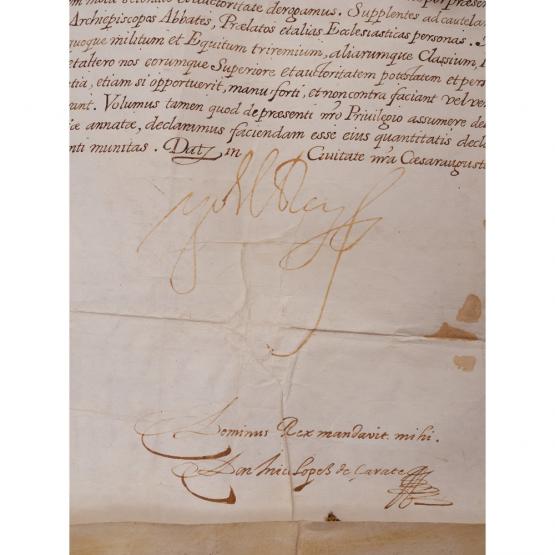 motu scientia et auctoritate derogamus. Supplentes ad cautelam
Archiepiscopos Abbates, Prælatos et alias Ecclesiasticas personas.
quoque militum et Equitum triremium, aliarumque Classium,
et altero nos eorumque Superiore et authoritatem potestatem et per
tia, etiam si opportuerit, manu forti, et non contra faciant vel ve
runt. Volumus tamen quod de præsenti nr̃o Priuilegio assumere de
iæ annatæ, declaramus faciendam esse eius quantitatis decla
nti munitas. Datz in Ciuitate nr̃a Cæsaraugustæ
yo el Rey
Dominus Rex mandavit mihi.
Don Lopes de Çarate